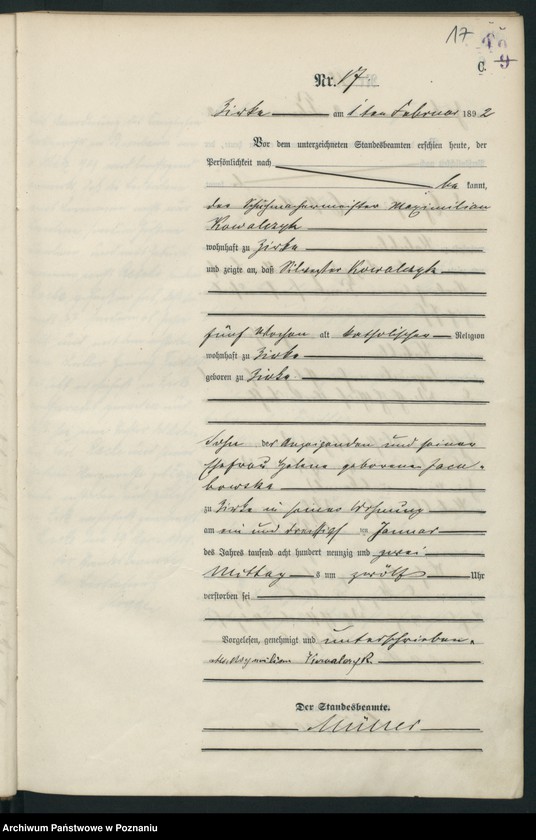 17
C.
Nr. 17
Zirke am 1ten Februar 1892
Vor dem unterzeichneten Standesbeamten erschien heute, der
Persönlichkeit nach
be kannt,
der Schuhmachermeister Maximilian
Kowalczyk
wohnhaft zu Zirke
und zeigte an, daß Silvester Kowalczyk
fünf Wochen alt katholischer Religion
wohnhaft zu Zirke
geboren zu Zirke
Sohn des Anzeigenden und seiner
Ehefrau Helene geborenen Jacu-
bowska
zu Zirke in seiner Wohnung
am ein und dreißigst en Januar
des Jahres tausend acht hundert neunzig und zwei
Mittag s um zwölf Uhr
verstorben sei
Vorgelesen, genehmigt und unterschrieben.
Maksymilian Kowalczyk
Der Standesbeamte.
Müller
Archiwum Państwowe w Poznaniu